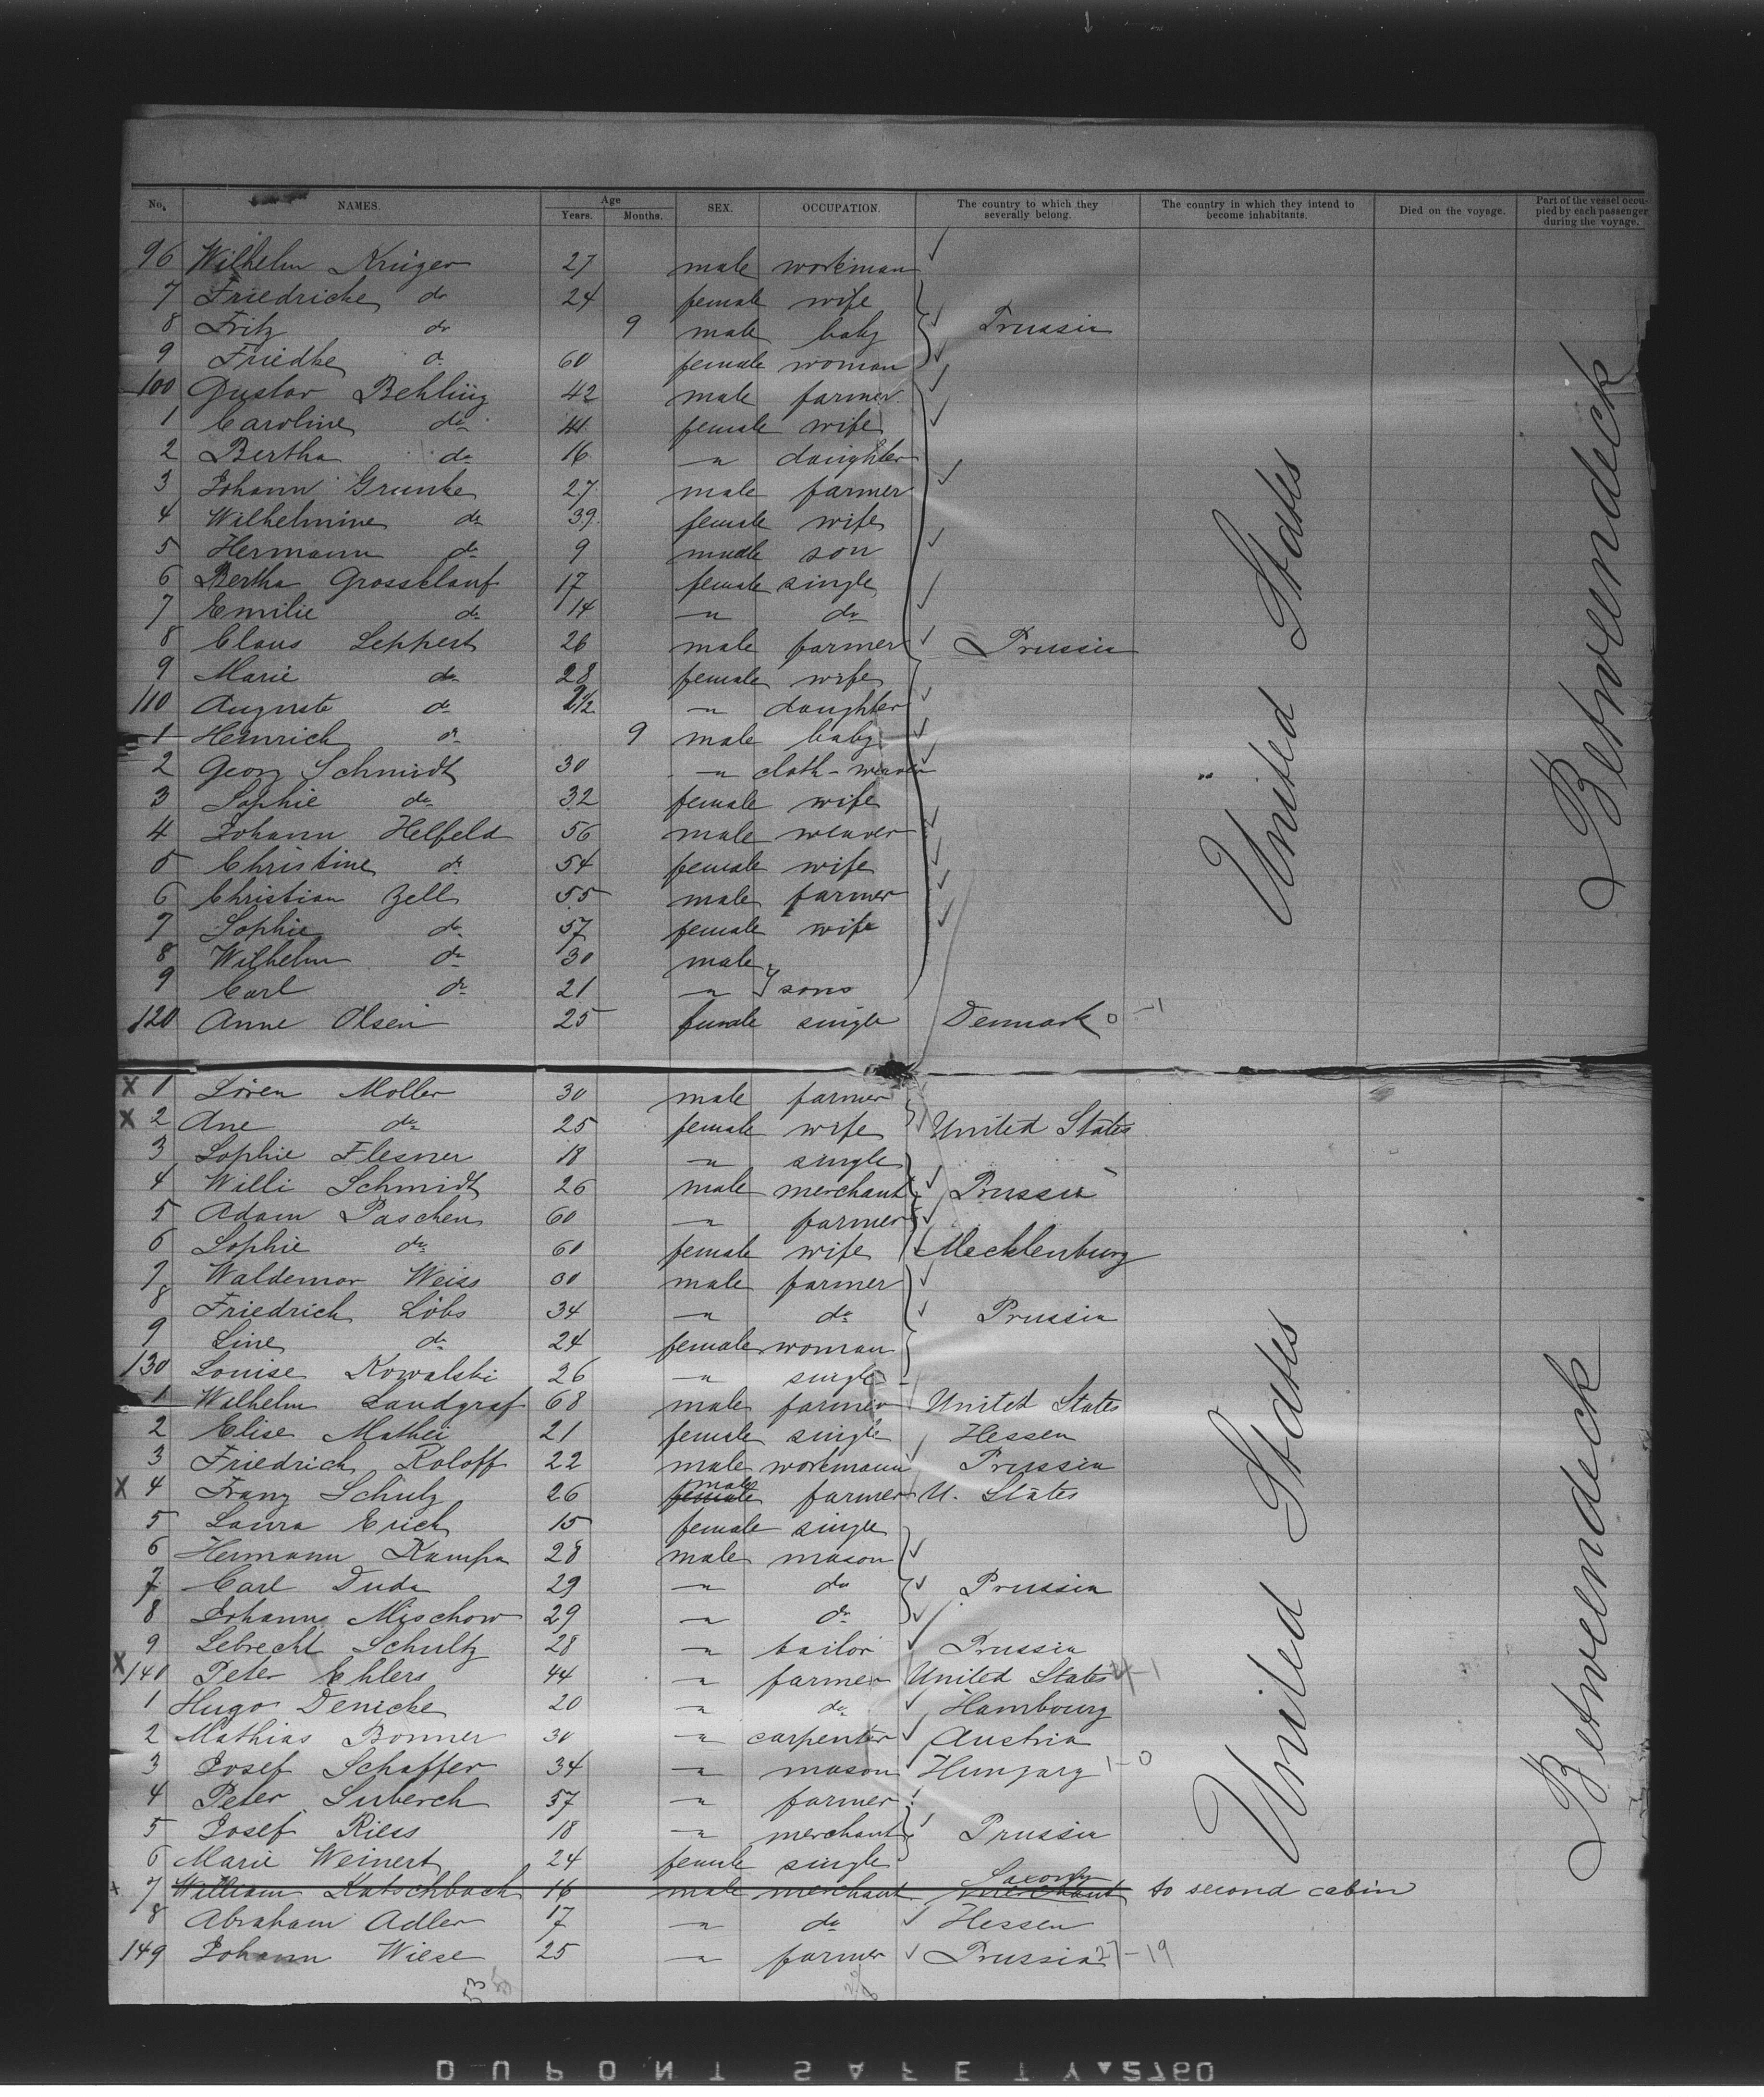 No. NAMES. Age Years. Months. SEX. OCCUPATION. The country to which they severally belong. The country in which they intend to become inhabitants. Died on the voyage. Part of the vessel occupied by each passenger during the voyage.
96 Wilhelm Krüger 27 male workman
7 Friedricke do 24 female wife
8 Fritz do 9 male baby Prussia
9 Friedke do 60 female woman
100 Gustav Behling 42 male farmer
1 Caroline do 41 female wife
2 Bertha do 16 " daughter
3 Johann Grunke 27 male farmer
4 Wilhelmine do 39 female wife
5 Hermann do 9 male son
6 Bertha Grossklauf 17 female single
7 Emilie do 14 " do
8 Claus Leppert 26 male farmer Prussia
9 Marie do 28 female wife
110 Auguste do daughter
1 Heinrich do 9 male baby
2 Georg Schmidt 30 " cloth-weaver
3 Sophie do 32 female wife
4 Johann Helfeld 56 male weaver
5 Christine do 54 female wife
6 Christian Zell 55 male farmer
7 Sophie do 57 female wife
8 Wilhelm do 30 male
9 Carl do 21 " } sons
120 Anne Olsen 25 female single Denmark 0-1
United States
Betweendeck
X 1 Sören Moller 30 male farmer
X 2 Ane do 25 female wife United States
3 Sophie Flesner 18 " single
4 Willi Schmidt 26 male merchant Prussia
5 Adam Paschen 60 " farmer
6 Sophie do 61 female wife Mecklenburg
7 Waldemar Weiss 30 male farmer
8 Friedrich Löbs 34 " do Prussia
9 Line do 24 female woman
130 Louise Kowalski 26 " single
1 Wilhelm Landgraf 68 male farmer United States
2 Elise Mathei 21 female single Hessen
3 Friedrich Roloff 22 male workmann Prussia
X 4 Franz Schulz 26 female male farmer U. States
5 Laura Erich 15 female single
6 Hermann Kampa 28 male mason
7 Carl Duda 29 " do Prussia
8 Johanns Mischow 29 " do
9 Lebrecht Schultz 28 " tailor Prussia
X 140 Peter Ehlers 44 " farmer United States 4-1
1 Hugo Denicke 20 " do Hambourg
2 Mathias Bonner 30 " carpenter Austria
3 Josef Schaffer 34 " mason Hungary 1-0
4 Peter Surberch 57 " farmer
5 Josef Riess 18 " merchant Prussia
6 Marie Weinert 24 female single
x 7 William Katschbach 16 male merchant merchant Saxony to second cabin
8 Abraham Adler 17 " do Hessen
149 Johann Wiese 25 " farmer Prussia 27-19
United States
Betweendeck
53
DUPONT SAFETY 2760